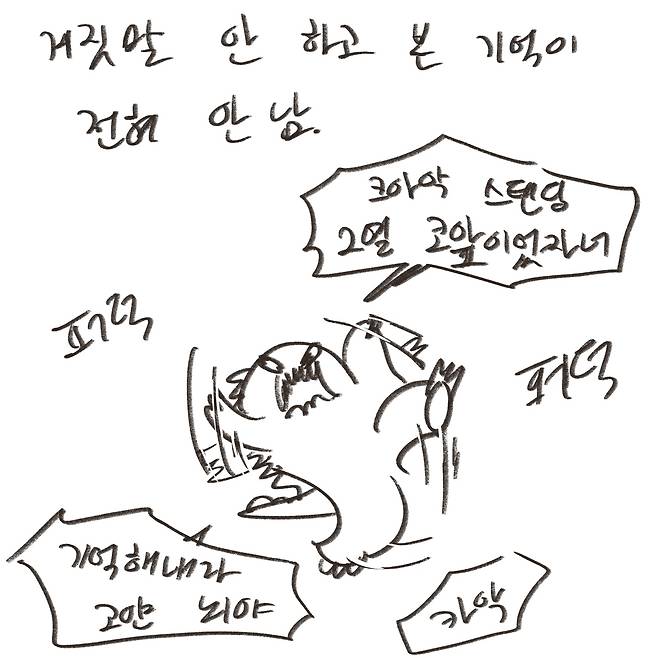 거짓말 안 하고 본 기억이
전혀 안 남.
크아악 스탠딩
2열 코앞이었자너
퍼덕
퍼덕
기억해내라
고얀 뇌야
카악